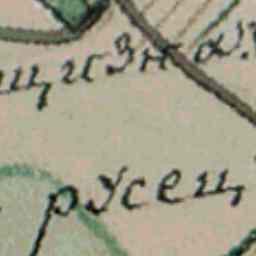 щизна.
русец